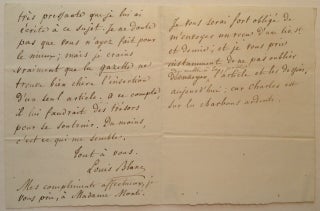 très pressante que je lui ai
écrite à ce sujet. Je ne doute
pas que vous n'ayez fait pour
le mieux; mais je crains
vraiment que la gazette ne
trouve bien chère l'insertion
d'un seul article. à ce compte,
il lui faudrait des trésors
pour se soutenir. Du moins,
c'est ce qui me semble.
Tout à vous.
Louis Blanc
Mes compliments affectueux, je
vous prie, à Madame
Je vous serai fort obligé de
m'envoyer un reçu d'une
et demie; et je vous prie
instamment de ne pas oublier
l'article et les
aujourd'hui: car Charles est
sur les charbons ardents.